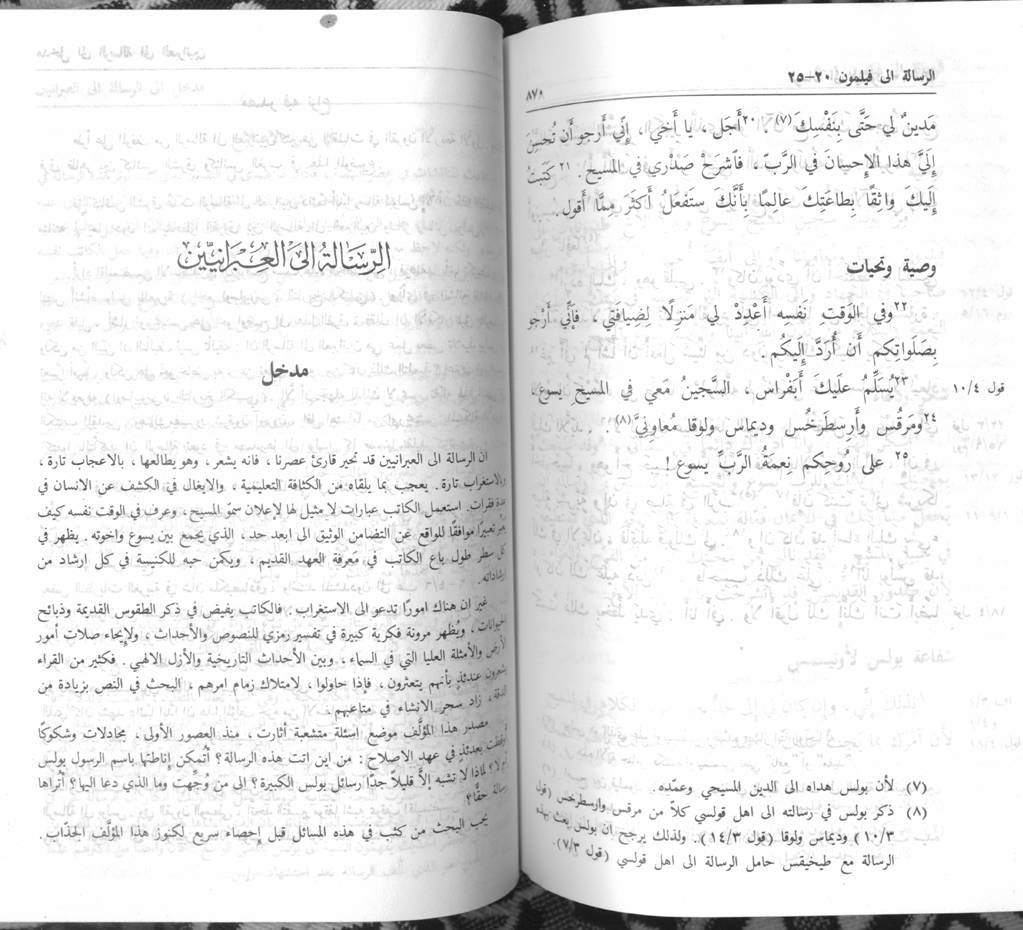 الرسالة الى فيلمون ٢٠-٢٥
٨٧٨
مَدينٌ لي حَتَّى بِنَفْسِكَ(٧). ٢٠أَجَل، يا أَخي، إِنِّي أَرجو أَن تُحسِنَ
إِلَيَّ هذا الإِحسانَ في الرَّبّ، فَاشرَحْ صَدْري في المسيح. ٢١كَتَبتُ
إِلَيكَ واثِقًا بِطاعَتِكَ عالِمًا بِأَنَّكَ ستَفعَلُ أَكثَرَ مِمَّا أَقول.
وصية وتحيات
٢٢وفي الوَقتِ نَفْسِه أَعْدِدْ لي مَنزِلًا لِضِيافَتي، فَإِنِّي أَرجو
بِصَلَواتِكم أَن أُرَدَّ إِلَيكم.
٢٣يُسَلِّمُ علَيكَ أَبَفْراس، السَّجينُ مَعي في المسيحِ يسوع،
قول ١٠/٤
٢٤ومَرقُس وأَرِسطَرخُس وديماس ولوقا مُعاوِنِيَّ(٨).
٢٥ على رُوحِكم نِعمَةُ الرَّبِّ يسوع!
(٧) لأن بولس هداه الى الدين المسيحي وعمّده.
(٨) ذكر بولس في رسالته الى اهل قولسي كلاً من مرقس وارسطرخس (قول
١٠/٣) وديماس ولوقا (قول ١٤/٣). ولذلك يرجح ان بولس بعث بهذه
الرسالة مع طيخيقس حامل الرسالة الى اهل قولسي (قول ٧/٣).
الرِّسَالَةُ الى العِبْرَانيّين
مدخل
ان الرسالة الى العبرانيين قد تحير قارئ عصرنا، فانه يشعر، وهو يطالعها، بالاعجاب تارة،
والاستغراب تارة. يعجب بما يلقاه من الكثافة التعليمية، والايغال في الكشف عن الانسان في
عدة فقرات. استعمل الكاتب عبارات لا مثيل لها لإعلان سموّ المسيح، وعرف في الوقت نفسه كيف
يعبر تعبيرًا موافقًا للواقع عن التضامن الوثيق الى ابعد حد، الذي يجمع بين يسوع واخوته. يظهر في
كل سطر طول باع الكاتب في مَعرفة العهد القديم، ويكمن حبه للكنيسة في كل ارشاد من
ارشاداته.
غير ان هناك امورًا تدعو الى الاستغراب. فالكاتب يفيض في ذكر الطقوس القديمة وذبائح
الحيوانات، ويُظهر مرونة فكرية كبيرة في تفسير رمزي للنصوص والأحداث، ولإيحاء صلات أمور
الأرض والأمثلة العليا التي في السماء، وبين الأحداث التاريخية والأزل الالهي. فكثير من القراء
يشعرون عندئذٍ بأنهم يتعثرون، فإذا حاولوا، لامتلاك زمام امرهم، البحث في النص بزيادة من
الدقة، زاد سحر الانشاء في متاعبهم.
مصدر هذا المؤلَّف موضع اسئلة متشعبة أثارت، منذ العصور الأولى، مجادلات وشكوكًا
بعدئذٍ في عهد الاصلاح: من اين اتت هذه الرسالة؟ أتُمكن إناطتها باسم الرسول بولس
ام لا؟ لماذا لا تشبه إلاَّ قليلاً جدًّا رسائل بولس الكبيرة؟ الى من وُجِّهت وما الذي دعا اليها؟ أتُراها
رسالة حقًّا؟
يجب البحث من كثب في هذه المسائل قبل إحصاء سريع لكنوز هذا المؤلَّف الجذّاب.